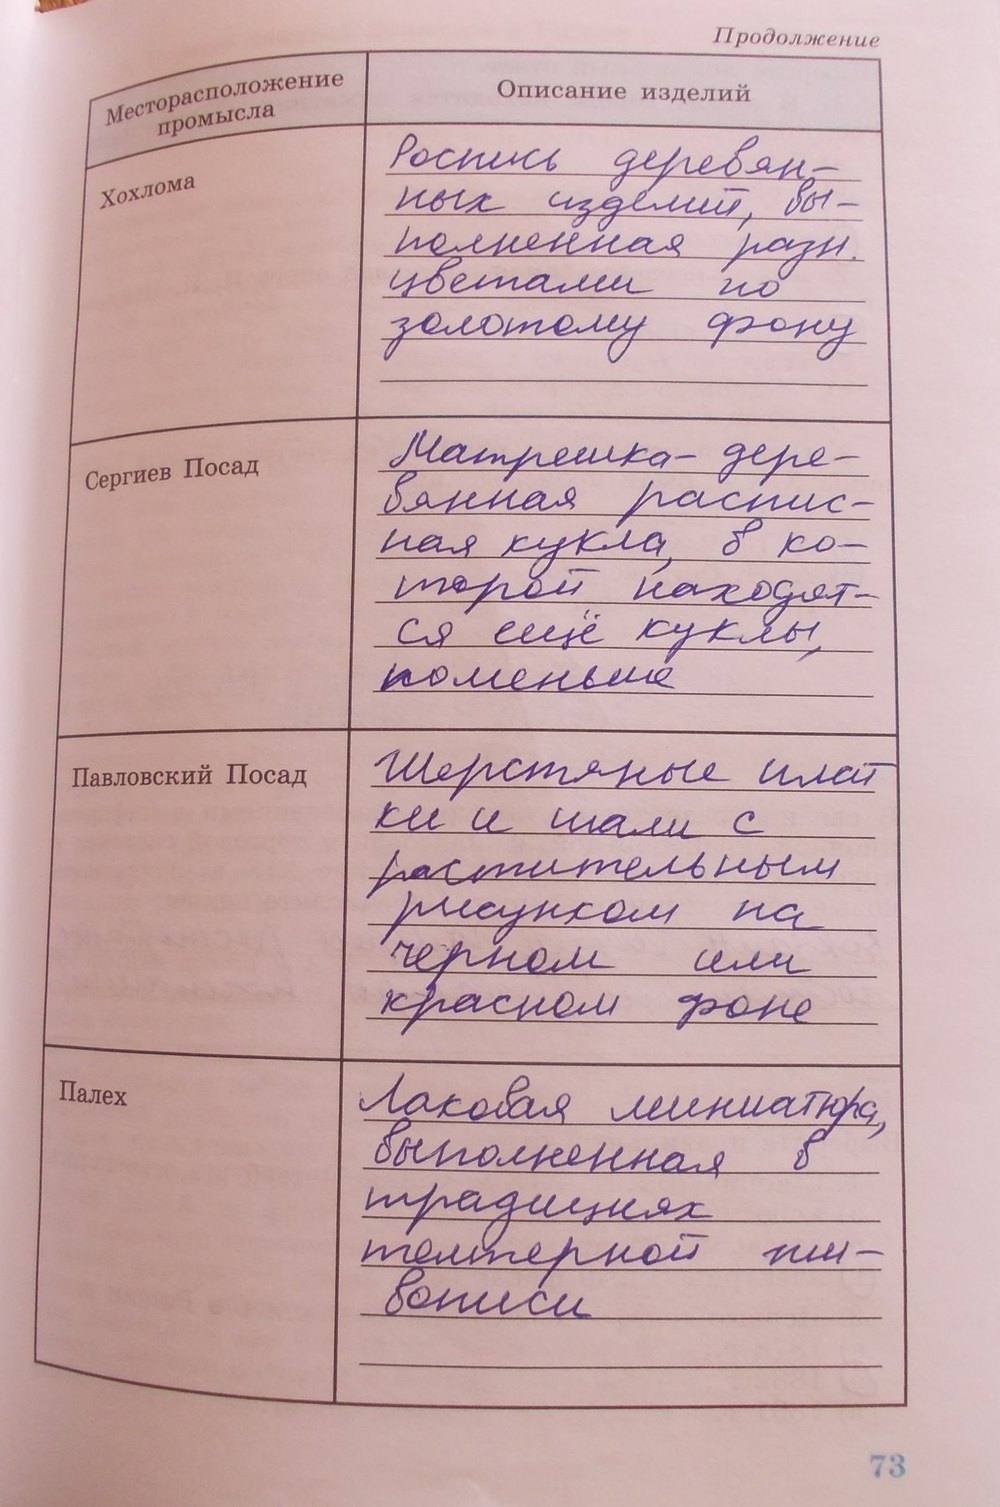 Продолжение
Месторасположение
промысла
Описание изделий
Хохлома
Роспись деревян-
ных изделий, вы-
полненная разн.
цветами по
золотому фону
Сергиев Посад
Матрешка - дере-
вянная распис-
ная кукла, в ко-
торой находят-
ся ещё куклы,
поменьше
Павловский Посад
Шерстяные плат
ки и шали с
растительным
рисунком на
черном или
красном фоне
Палех
Лаковая миниатюра,
выполненная в
традициях
темперной жи-
вописи
73